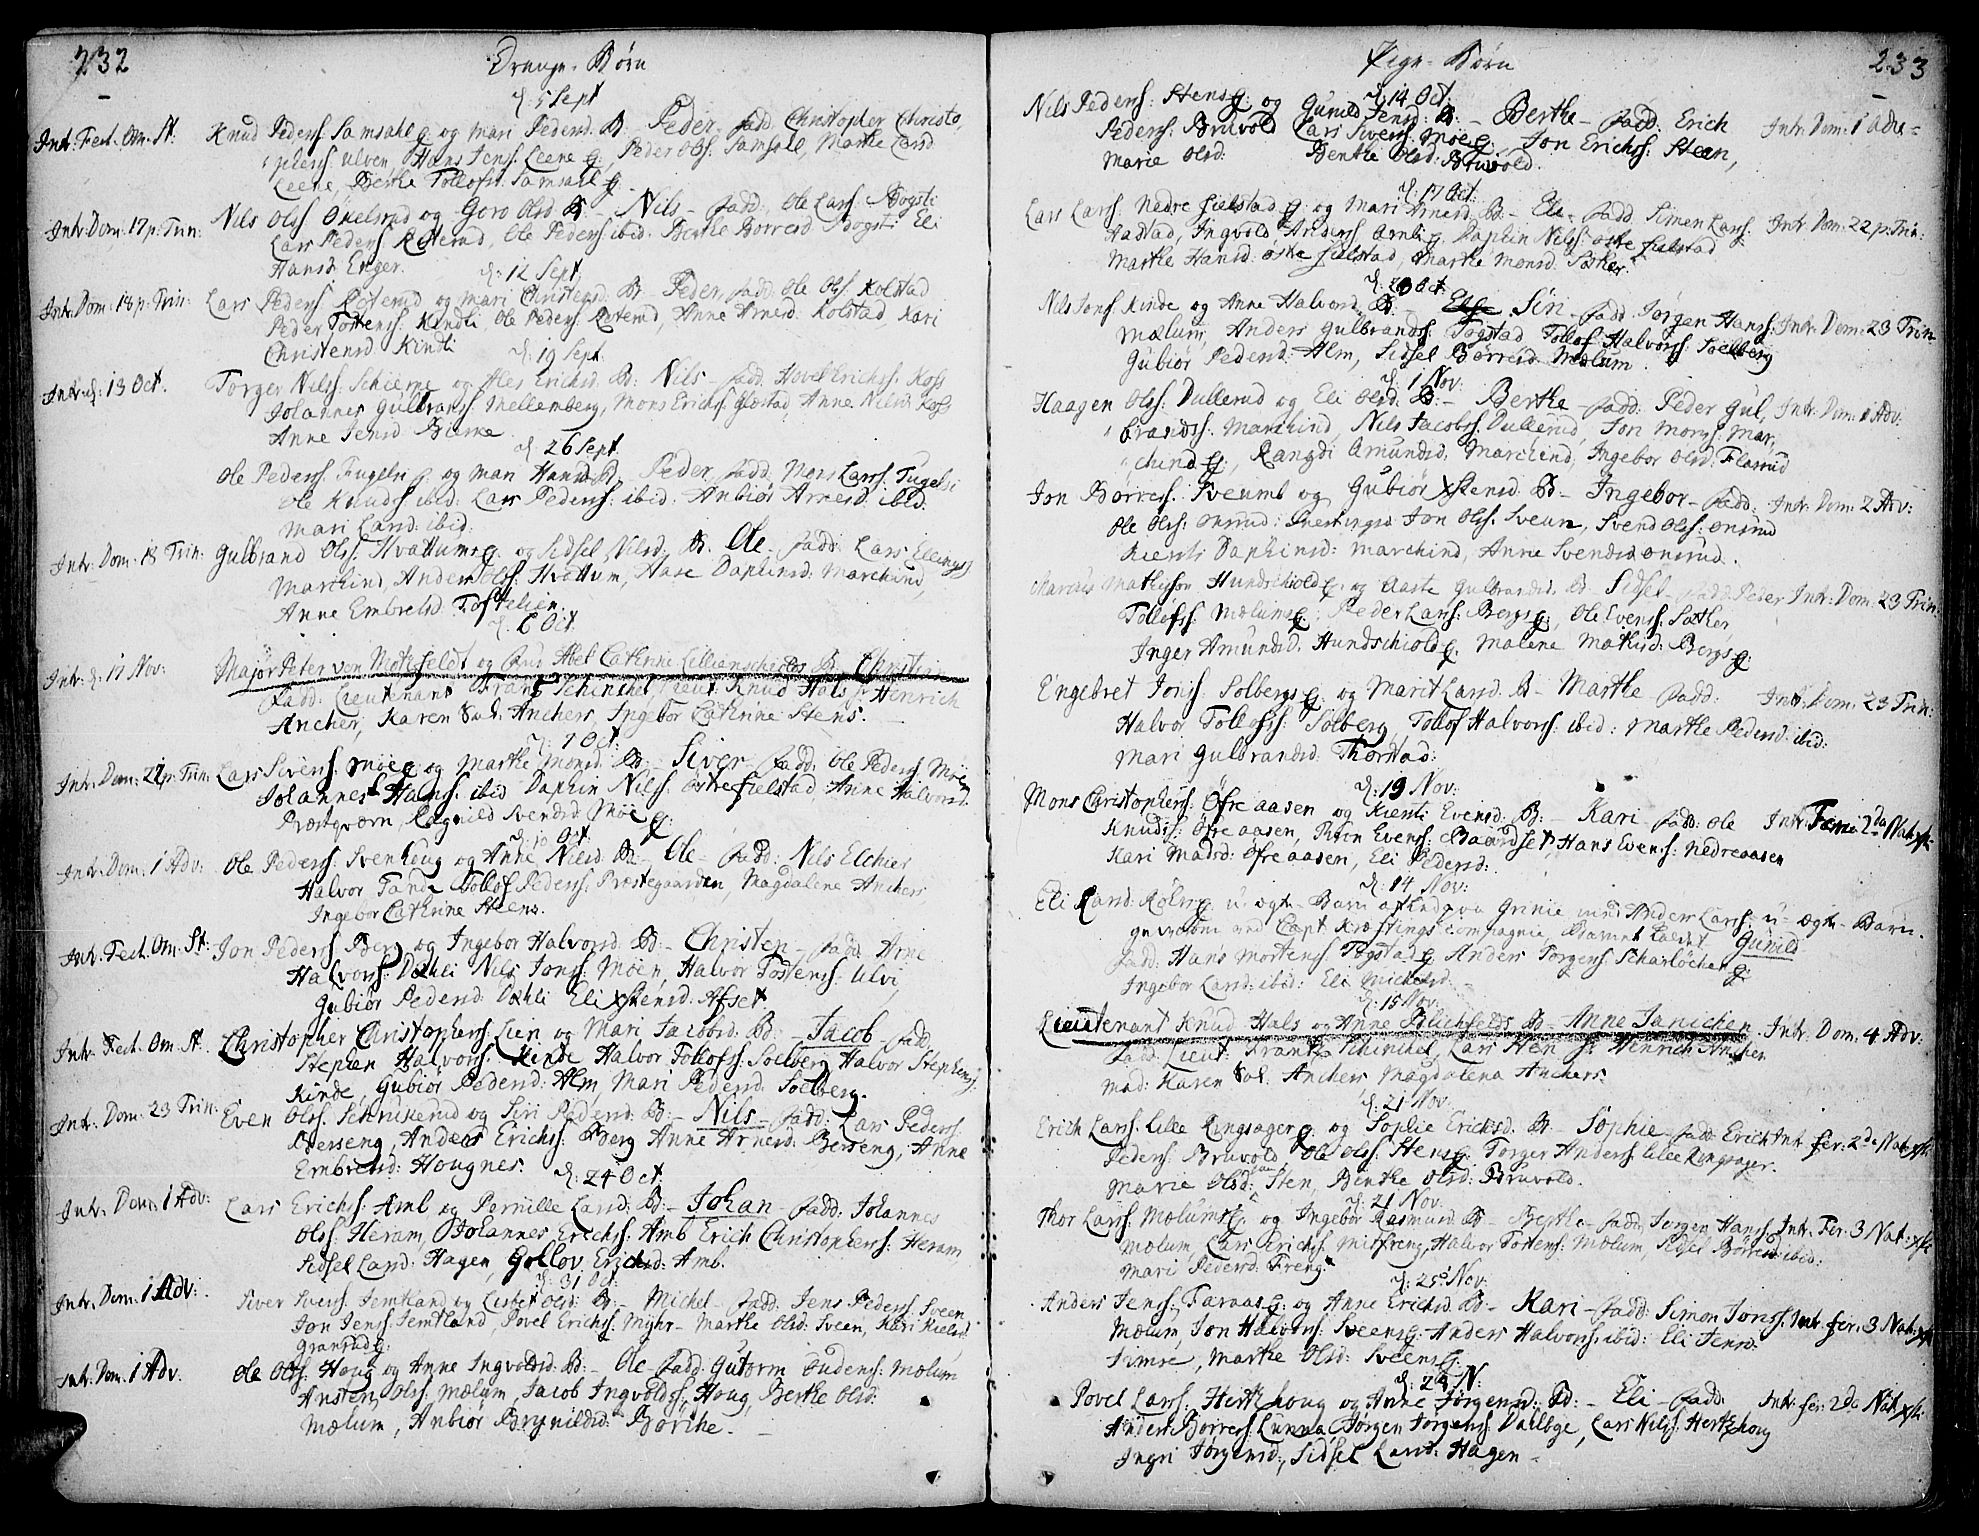 232
Drenge-Børn
d: 5 Sept
Intr. Fest. Om. St. Knud Peders: Samsahl g. og Mari Pedersd. B: Peder. fadd. Christopher Christo,
phers: Ulven, Hans Jens: Leene g., Peder Ols: Samsahl, Marthe Larsd
Leene, Berthe Tollofsd. Samsahl g.
Intr. Dom: 17 p: Trin: Nils Ols: Økelsrud og Goro Olsd B. - Nils - fadd. Ole Lars: Bogsti
Lars Peders: Røterud, Ole Peders: ibid. Berthe Børresd Bogsti Eli
Hansd: Enger.
d: 12 Sept.
Intr. Dom: 18 p: Trin: Lars Peders: Røterud og Mari Christensd. B: Peder fadd: Ole Ols: Kolstad
Peder Tostens: Kindli Ole Peders: Røterud, Anne Arnesd. Kolstad Kari
Christensd. Kindli
d: 19 Sept.
Intr. d: 13 Oct. Torger Nils: Schierne og Ales Erichsd. B: Nils - fadd. Hovel Erichss: Koss
Johannes Gulbrans: Mellemberg, Mons Erichs: Gløstad, Anne Nilsd. Koss
Anne Jensd Bierke
d: 26 Sept.
Ole Peders: Fugelsi g. og Mari Hansd. B. Peder fadd. Mons Larss: Fugelsi
Ole Knuds: ibid: Lars Peders: ibid: Anbiør Arnesd. ibid.
Mari Larsd: ibid.
Intr. Dom. 18 Trin: Gulbrand Ols: Hvattums g. og Sidsel Nilsd. B. Ole. fadd: Lars Ellings
Marchind, Anders Ols: Hvattum, Hase Daphinsd: Marchind,
Anne Embretsd. Toftelien.
d: 6 Oct.
Intr: d: 17 Nov: Major Peter von Motzfeldt og Frue Abel Cathrine Lillienscheolds B. Christen
fadd: Lieutenant Frantz Schinchel Lieut. Knud Hals Hr. Henrich
Ancher, Karen Sal. Anchers, Ingebor Cathrine Stens.
d: 7 Oct:
Intr. Dom: 22 p: Trin: Lars Sivers: Moe g. og Marthe Monsd. B. - Siver fadd. Ole Peders: Moe
Johannes Hans: ibid Daphin Nils: østre Fielstad, Anne Halvorsd
Præstqværn, Ragnild Svendsd Moe g:
d: 10 Oct.
Intr. Dom: 1 Adv: Ole Peders: Svenhoug og Anne Nilsd. B. - Ole - fadd: Nils Elchier
Halvor Tande Tollof Peders: Præstegaarden, Magdalene Anchers,
Ingebor Cathrine Steens.
Intr. Fest. Om. St: Jon Peders: Berg og Ingebor Halvorsd. B. - Christen - fadd Arne
Halvors: Dæhli Nils Jons: Moen, Halvor Tostens: Ulvi,
Gubiør Pedersd. Dæhli Eli Xstensd. Afset
Intr. Fest. Om. St. Christopher Christophers: Lien og Mari Jacobsd. B: - Jacob - fadd.
Stephen Halvors: Kinde Halvor Tollofs: Soelberg Halvor Stephens:
Kinde, Gubiør Pedersd: Alm, Mari Pedersd. Soelberg.
Intr. Dom. 23 Trin: Even Ols: Schrukerud og Siri Pedersd. B: - Nils - fadd: Lars Peders:
Berseng, Anders Erichs: Berg Anne Arnesd. Berseng, Anne
Embretsd: Hougner.
d: 24 Oct.
Intr. Dom: 1 Adv: Lars Erichs: Amb og Pernille Larsd: B: - Johan - fadd: Johannes
Ols: Heram, Johannes Erichs: Amb Erich Christophers: Heram,
Sidsel Larsd: Hagen, Gollov Erichsd: Amb.
d: 31 Oct:
Intr. Dom. 1 Adv: Siver Svens: Jemtland og Lisbet Olsd: B: - Michel - fadd: Jens Peders: Sveen
Jon Jens: Jemtland, Povel Erichs: Myhr - Marthe Olsd: Sveen, Kari
Granrud g.
Intr. Dom. 1 Adv. Ole Ols: Houg og Anne Ingvoldsd: B: - Ole - fadd: Gutorm Gudens: Mælum
Ansten Ols: Mælum, Jacob Ingvolds: Houg, Berthe Olsd:
Mælum, Anbiør Brynildsd: Børche.
233
Pige-Børn
d: 14 Oct.
Nils Peders: Stens g: og Gunild Jensd: B: - Berthe - fadd: Erich Intr. Dom: 1 Adv.
Peders: Bruvold Lars Sivers: Moe g., Jon Erichs: Steen,
Marie Olsd: Benthe Olsd: Bruvold.
d: 17 Oct:
Lars Lars: Nedre Fielstad g: og Mari Arnesd. B: - Eli. fadd Simen Lars: Intr. Dom: 22 p: Trin:
Aastad, Ingvold Anders: Arnli g. Daphin Nils: østre Fielstad
Marthe Hansd: østre Fielstad, Marthe Monsd: Sæther.
d: 23 Oct
Nils Jons: Kinde og Anne Halvorsd. B - Else Siri - fadd: Jørgen Hans: Intr: Dom: 23 Trin
Mælum, Anders Gulbrands: Togstad Tollof Halvors: Soelberg
Gubiør Pedersd: Alm, Sidsel Børresd: Mælum.
d: 1 Nov:
Haagen Ols: Dullerud og Eli Olsd. B: - Berthe - fadd: Peder Gul, Intr: Dom: 1 Adv:
brands: Marchind, Nils Jacobs: Dullerud, Jon Mons: Mar,
chind g:, Rangdi Amundsd. Marchind, Ingebor Olsd: Flarud
Jon Børres: Sveumb og Gubiør Xstensd. B - Ingebor - fadd: Intr: Dom: 2 Adv:
Ole Ols: Onsrud: Jon Ols: Sveun, Svend Ols: Onsrud
Kiersti Daphinsd: Marchind, Anne Svendsd: Onsrud.
Matheson Hundschiold g. og Aaste Gulbrandsd. B - Sidsel - fadd: Peder Intr: Dom: 23 Trin:
Tollofs: Mælums g:, Peder Lars: Bergs g:, Ole Evens: Sæther,
Inger Amundsd. Hundschiold g. Malene Mathisd: Bergs g:
Engebret Jons: Solbergs g: og Marit Larsd. B - Marthe fadd: Intr: Dom: 23 Trin:
Halvor Tollofs: Solberg, Tollof Halvors: ibid: Marthe Pedersd: ibid:
Mari Gulbrandsd. Thorstad:
d: 19 Nov:
Mons Christophers: Øfre Aasen og Kiersti Evensd: B: - Kari - fadd: Ole Intr: Feria 2da Nat: Xsti
Knuds: Øfre Aasen, Even Evens: Baardset, Hans Evens: Nedre Aasen
Kari Madsd: Øfre Aasen, Eli Pedersd:
d: 14 Nov:
Eli Larsd: Kols g: u-ægte-Barn Grinie med Anders Lars: u-ægte-Barn.
ved Capt Kræftings Compagnie Barnet kaldet Gunild
fadd: Hans Mortens: Togstad g: Anders Torgers: Scharløcher g:
Ingebor Larsd: ibid: Eli Michelsd.
d: 15 Nov:
Lieutenant Knud Hals og Anne Blichfelds B - Anne Janichen Intr: Dom: 4 Adv:
fadd: Lieut: Frantz Schinchel, Lars Sten Hr: Henrich Ancher
Mad: Karen Sal. Anchers Magdalena Anchers.
d: 21 Nov.
Erich Lars: Lille Ringsager g. og Sophie Erichsd. B - Sophie - fadd: Erich Intr: Fer: 2da Nat: Xsti
Peders: Bruvold Ole Ols: Stens g: Torger Anders: Lille Ringsager.
Marie Olsd: Sten, Benthe Olsd: Bruvold.
d: 21 Nov.
Thor Lars: Mælums g: og Ingebor Rasmusd. B - Berthe - fadd: Jørgen Hans: Intr. Fer: 3 Nat: Xsti
Mælum, Lars Erichs: Midtreng, Halvor Tostens: Mælum, Sidsel Børresd: ibid:
Mari Pedersd: Freng.
d: 25 Nov:
Anders Jens: Faraas g: og Anne Erichsd. B - Kari - fadd: Simon Jons: Intr. Fer: 3 Nat: Xsti
Mælum, Jon Halvors: Sveens g: Anders Halvors: ibid: Eli Jensd:
Simse, Marthe Olsd: Sveens g:
d: 28 N:
Povel Lars: Hertzhoug og Anne Jørgensd: B: - Eli - fadd: Intr. Fer: 2da Nat: Xsti
Anders Børres: Lunna, Jørgen Jørgens: Dælbye, Lars Nils: Hertzhoug
Ingri Jørgensd:, Sidsel Larsd: Hagen -